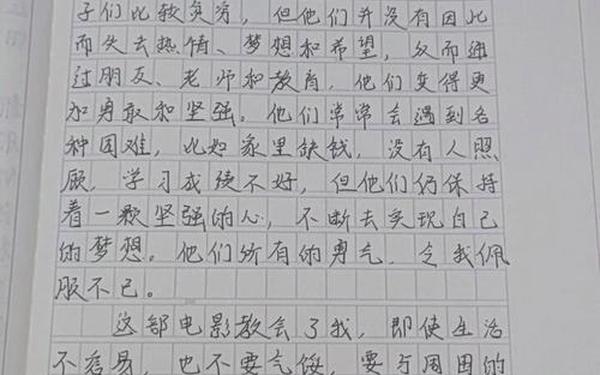 子们比较贫穷，但他们并没有因此
而失去热情、梦想和希望，反而通
过朋友、老师和教育，他们变得更
加勇敢和坚强。他们常常会遇到各
种困难，比如家里缺钱，没有人照
顾，学习成绩不好，但他们仍保持
着一颗坚强的心，不断去实现自己
的梦想。他们所有的勇气，令我佩
服不已。
这部电影教会了我，即使生活
不容易，也不要气馁，要与周围的